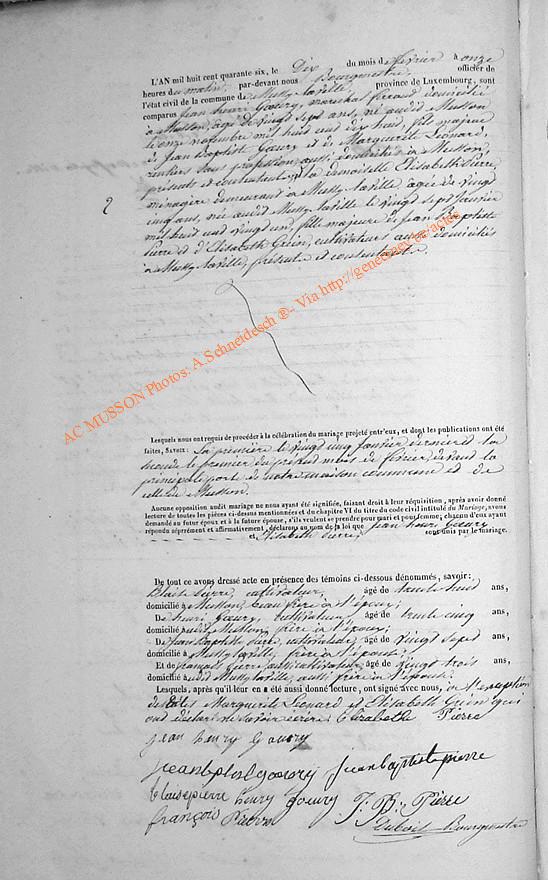 L'AN mil huit cent quarante six, le Dix du mois de février à onze
heures du matin, par-devant nous Bourgmestre, officier de
l'état civil de la commune de Mussy laville, province de Luxembourg, sont
comparus jean henri Goeury, maréchal férand domicilié
à Musson, agé de vingt sept ans, né audit Musson
le onze novembre mil huit cent dix huit, fils majeur
de jean Baptist Goeury et de Marguerite Léonard,
rentiers sans profession, aussi domiciliés à Musson,
présents et consentant, et la demoiselle Elisabeth Pierre,
2
ménagère demeurant à Mussy laville, agée de vingt
cinq ans, née audit Mussy laville le vingt sept janvier
mil huit cent vingt un, fille majeure de jean Baptiste
Pierre et d'Elisabeth Guin, cultivateurs aussi domiciliés
à Mussy laville, présents et consentant.
AC MUSSON Photos: A.Schneidesch ®- Via http://geneanext.be/actes
Lesquels nous ont requis de procéder à la célébration du mariage projeté entr'eux, et dont les publications ont été
faites, SAVOIR: La première le vingt cinq janvier dernier et la
seconde le premier du présent mois de février devant la
principale porte de notre maison commune et de
celle de Musson.
Aucune opposition audit mariage ne nous ayant été signifiée, faisant droit à leur réquisition, après avoir donné
lecture de toutes les pièces ci-dessus mentionnées et du chapitre VI du titre du code civil intitulé du Mariage, avons
demandé au futur époux et à la future épouse, s'ils veulent se prendre pour mari et pour femme; chacun d'eux ayant
répondu séparément et affirmativement, déclarons au nom de la loi que jean henri Goeury
et Elisabeth Pierre, sont unis par le mariage.
De tout ce avons dressé acte en présence des témoins ci-dessous dénommés, savoir:
Blaise Pierre, cultivateur, âgé de trente huit ans,
domicilié à Musson, beau frère à l'époux;
De henri Goeury, cultivateur, âgé de trente cinq ans,
domicilié audit Musson, frère à l'époux;
De jean Baptiste Pierre, cultivateur, âgé de vingt sept ans,
domicilié à Mussy laville, frère à l'épouse;
Et de françois Pierre aussi cultivateur, âgé de vingt trois ans,
domicilié audit Mussy laville, aussi frère à l'épouse.
Lesquels, après qu'il leur en a été aussi donné lecture, ont signé avec nous, à l'exception
Marguerite Léonard et Elisabeth Guin qui
ont déclaré ne savoir écrire. Elizabethe Pierre
jean henry Goeury
jean bptist goeury jean baptiste pierre
blaise pierre henry goeury J. B. Pierre
françois Pierre Bourgmestre